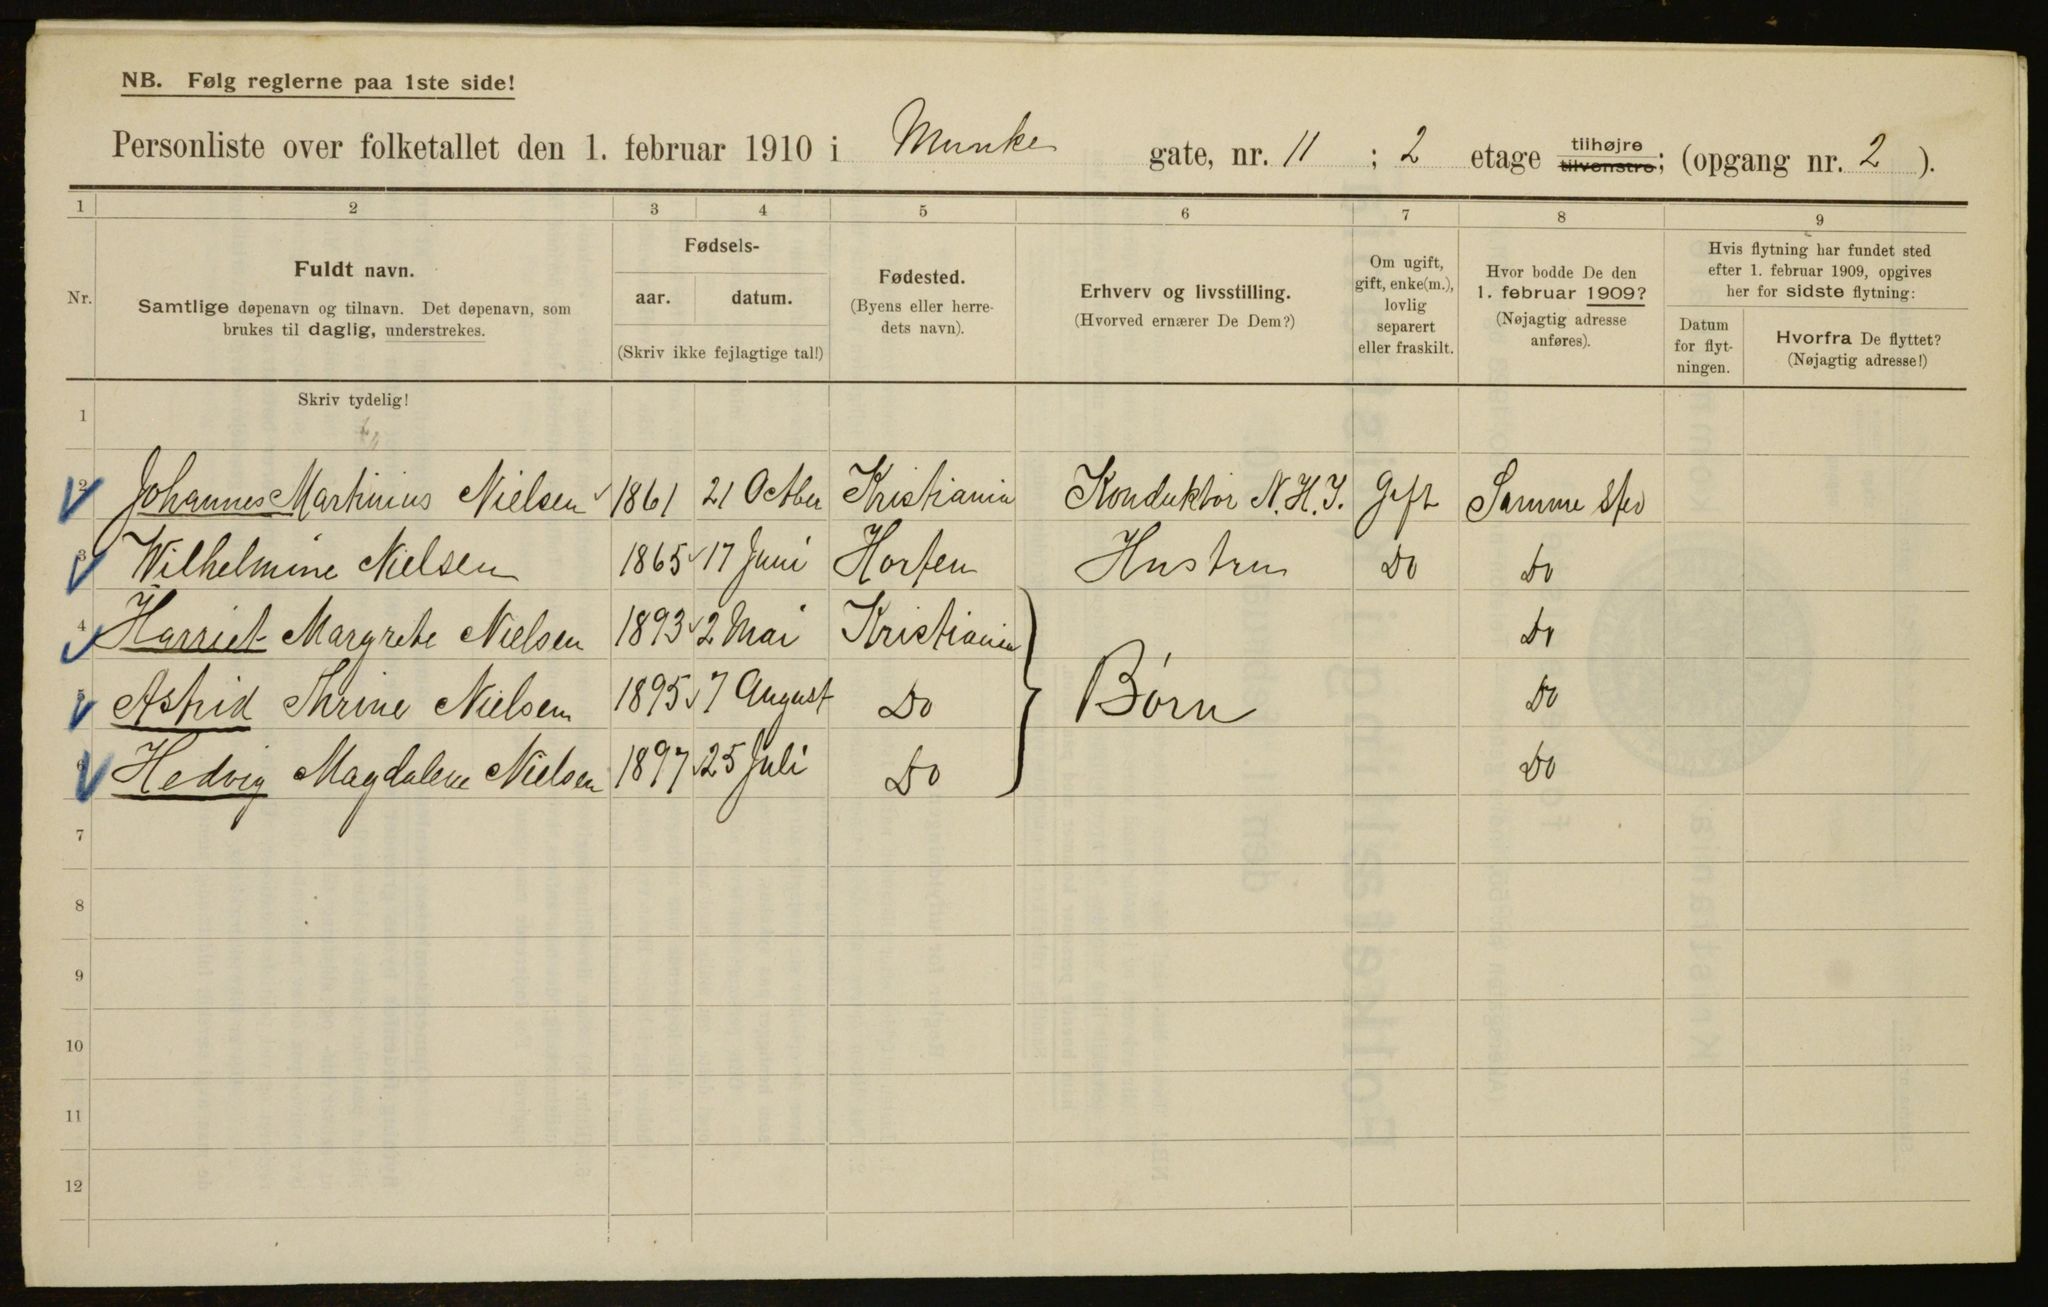 NB. Følg reglerne paa 1ste side!
Personliste over folketallet den 1. februar 1910 i Munke gate, nr. 11 ; 2 etage tilhøjre tilvenstre; (opgang nr. 2 ).
1 2 3 4 5 6 7 8 9
Nr.
Fuldt navn.
Samtlige døpenavn og tilnavn. Det døpenavn, som
brukes til daglig, understrekes.
Fødsels-
aar. datum.
(Skriv ikke fejlagtige tal!)
Fødested.
(Byens eller herre-
dets navn).
Erhverv og livsstilling.
(Hvorved ernærer De Dem?)
Om ugift,
gift, enke(m.),
lovlig
separert
eller fraskilt.
Hvor bodde De den
1. februar 1909?
(Nøjagtig adresse
anføres).
Hvis flytning har fundet sted
efter 1. februar 1909, opgives
her for sidste flytning:
Datum
for flyt-
ningen.
Hvorfra De flyttet?
(Nøjagtig adresse!)
Skriv tydelig!
1
2 Johannes Martinius Nielsen 1861 21 Octber Kristiania Konduktør N.H.J. Gift Samme sted
3 Wilhelmine Nielsen 1865 17 Juni Horten Hustru Do Do
4 Harriet Margrete Nielsen 1893 2 Mai Kristiania Do
5 Astrid Thrine Nielsen 1895 7 August Do Børn Do
6 Hedvig Magdalene Nielsen 1897 25 Juli Do Do
7
8
9
10
11
12